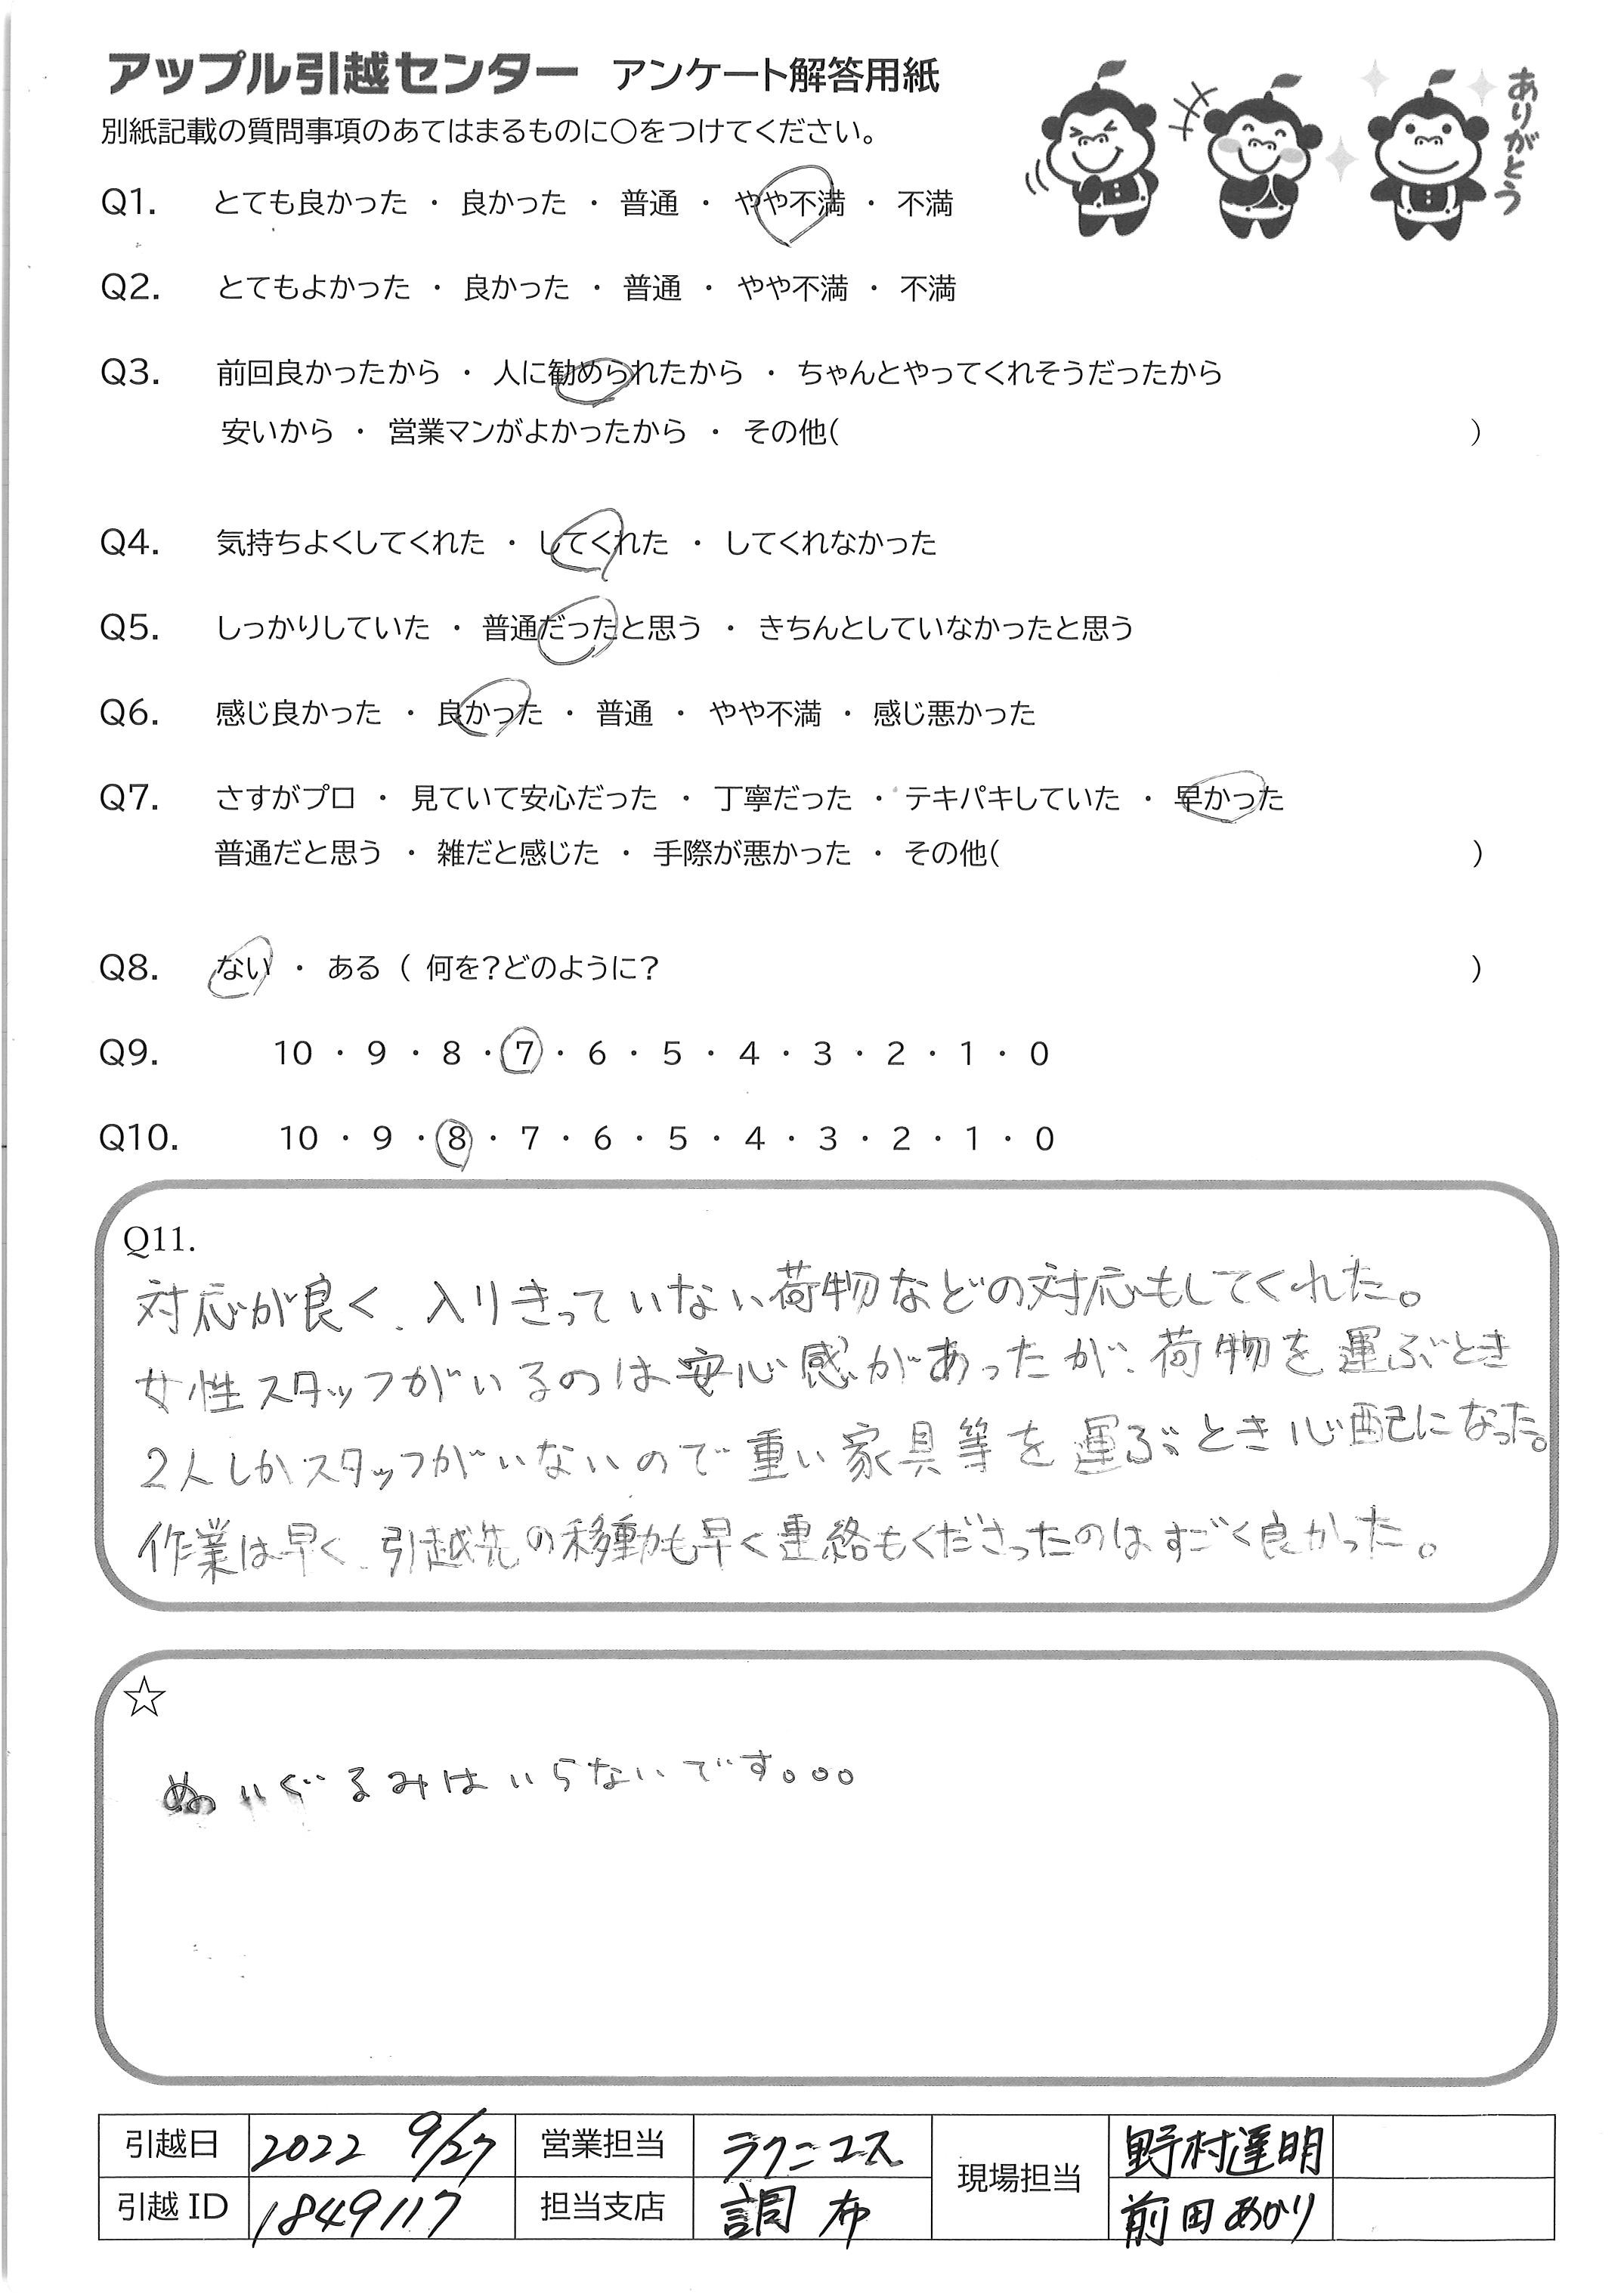 アップル引越センター アンケート解答用紙
ありがとう
別紙記載の質問事項のあてはまるものに〇をつけてください。
Q1. とても良かった ・ 良かった ・ 普通 ・ やや不満 ・ 不満
Q2. とてもよかった ・ 良かった ・ 普通 ・ やや不満 ・ 不満
Q3. 前回良かったから ・ 人に勧められたから ・ ちゃんとやってくれそうだったから
安いから ・ 営業マンがよかったから ・ その他( )
Q4. 気持ちよくしてくれた ・ してくれた ・ してくれなかった
Q5. しっかりしていた ・ 普通だったと思う ・ きちんとしていなかったと思う
Q6. 感じ良かった ・ 良かった ・ 普通 ・ やや不満 ・ 感じ悪かった
Q7. さすがプロ ・ 見ていて安心だった ・ 丁寧だった ・ テキパキしていた ・ 早かった
普通だと思う ・ 雑だと感じた ・ 手際が悪かった ・ その他( )
Q8. ない ・ ある ( 何を?どのように? )
Q9. 10 ・ 9 ・ 8 ・ 7 ・ 6 ・ 5 ・ 4 ・ 3 ・ 2 ・ 1 ・ 0
Q10. 10 ・ 9 ・ 8 ・ 7 ・ 6 ・ 5 ・ 4 ・ 3 ・ 2 ・ 1 ・ 0
Q11.
対応が良く、入りきっていない荷物などの対応もしてくれた。
女性スタッフがいるのは安心感があったが、荷物を運ぶとき
2人しかスタッフがいないので重い家具等を運ぶとき心配になった。
作業は早く、引越先の移動も早く連絡もくださったのはすごく良かった。
☆
ぬいぐるみはいらないです。。。
引越日 2022 9/27 営業担当 ラクニコス 現場担当 野村達明
引越ID 1849117 担当支店 調布 前田あかり